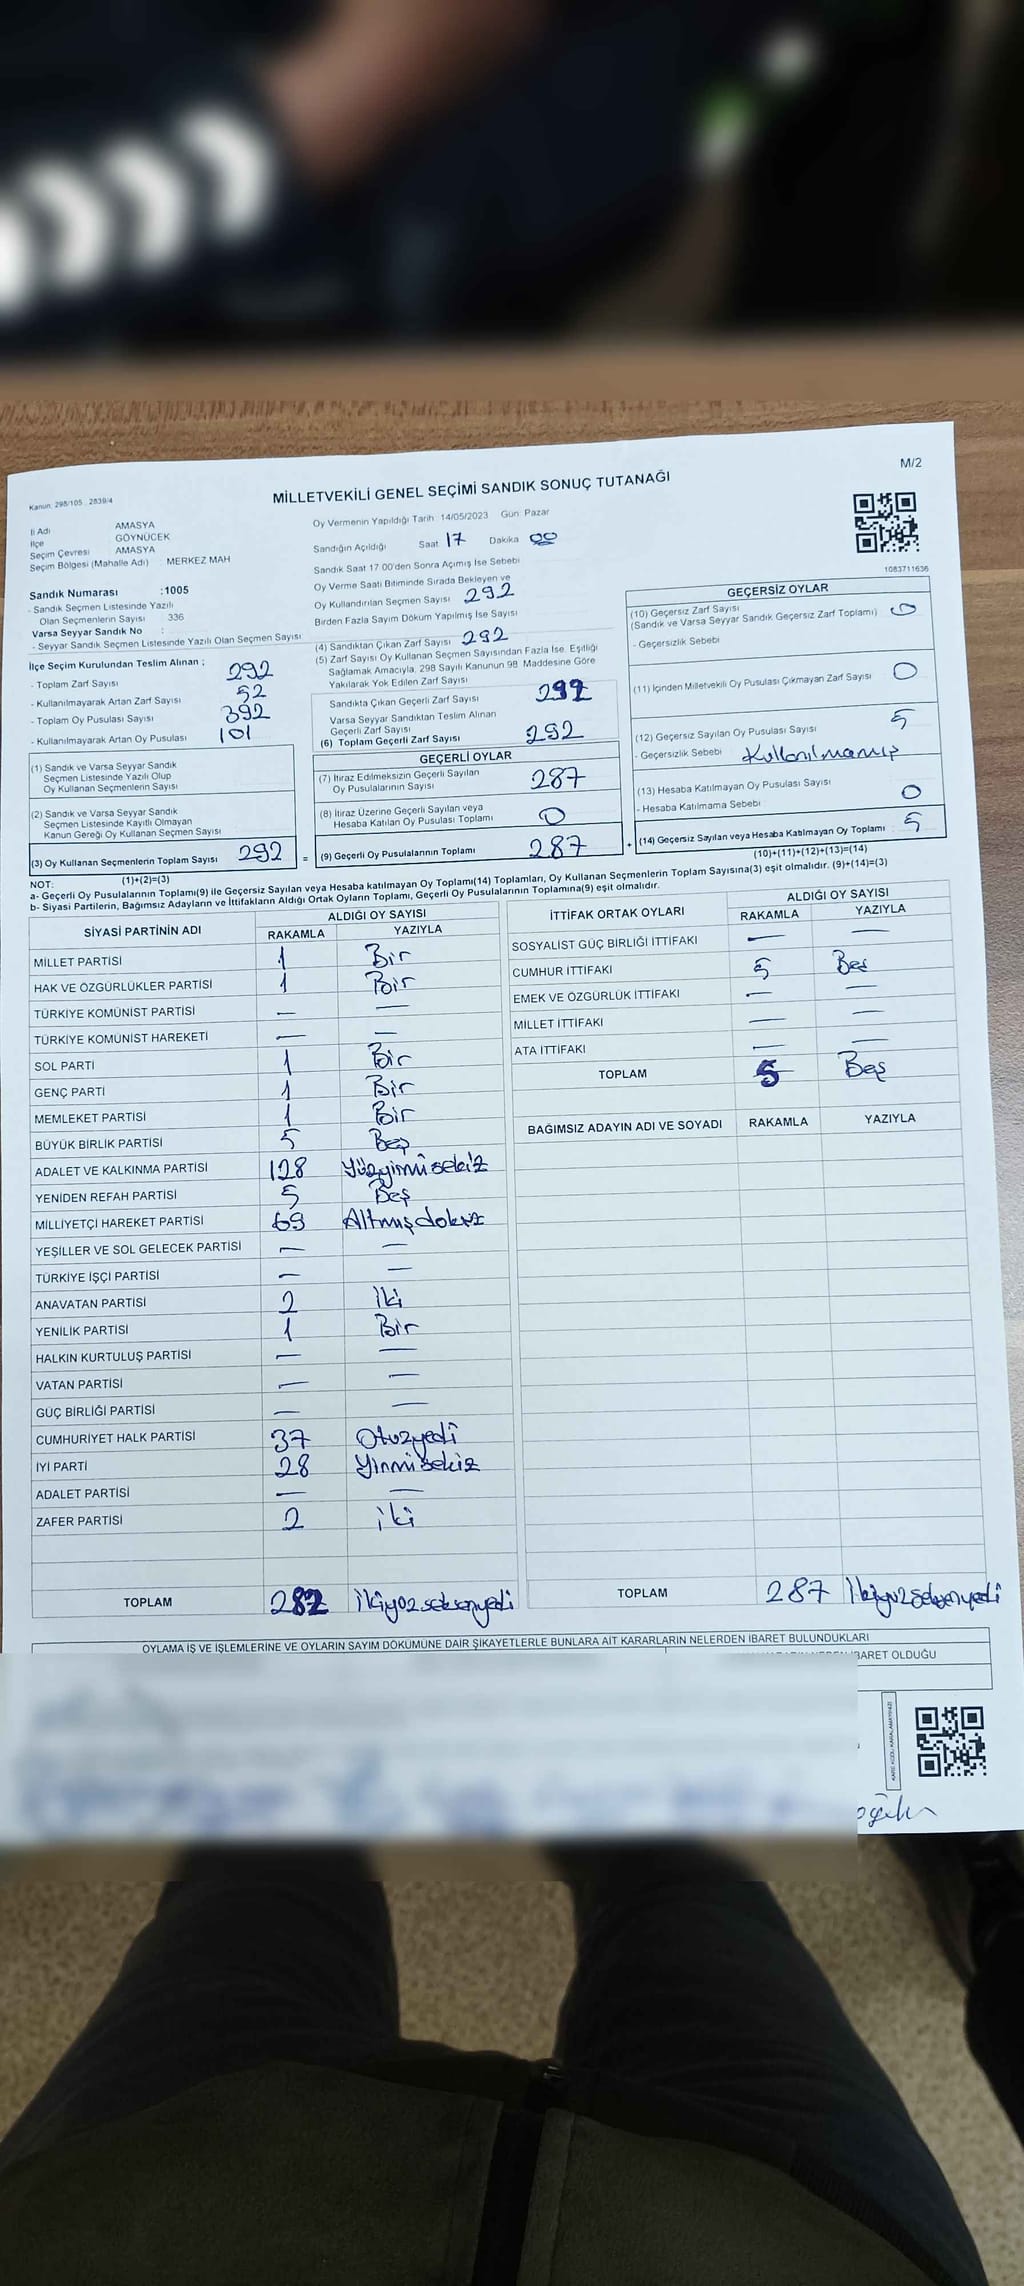 M/2
Kanun: 298/105 , 2839/4
MİLLETVEKİLİ GENEL SEÇİMİ SANDIK SONUÇ TUTANAĞI
İl Adı AMASYA
İlçe GÖYNÜCEK
Seçim Çevresi AMASYA
Seçim Bölgesi (Mahalle Adı) : MERKEZ MAH
Sandık Numarası :1005
- Sandık Seçmen Listesinde Yazılı
Olan Seçmenlerin Sayısı : 336
Varsa Seyyar Sandık No :
- Seyyar Sandık Seçmen Listesinde Yazılı Olan Seçmen Sayısı
İlçe Seçim Kurulundan Teslim Alınan ;
- Toplam Zarf Sayısı 292
- Kullanılmayarak Artan Zarf Sayısı 52
- Toplam Oy Pusulası Sayısı 392
- Kullanılmayarak Artan Oy Pusulası 101
(1) Sandık ve Varsa Seyyar Sandık
Seçmen Listesinde Yazılı Olup
Oy Kullanan Seçmenlerin Sayısı
(2) Sandık ve Varsa Seyyar Sandık
Seçmen Listesinde Kayıtlı Olmayan
Kanun Gereği Oy Kullanan Seçmen Sayısı
(3) Oy Kullanan Seçmenlerin Toplam Sayısı 292 =
(1)+(2)=(3)
Oy Vermenin Yapıldığı Tarih: 14/05/2023 Gün: Pazar
Sandığın Açıldığı Saat 17 Dakika 00
Sandık Saat 17:00'den Sonra Açılmış İse Sebebi
Oy Verme Saati Bitiminde Sırada Bekleyen ve
Oy Kullandırılan Seçmen Sayısı 292
Birden Fazla Sayım Döküm Yapılmış İse Sayısı
(4) Sandıktan Çıkan Zarf Sayısı 292
(5) Zarf Sayısı Oy Kullanan Seçmen Sayısından Fazla İse, Eşitliği
Sağlamak Amacıyla, 298 Sayılı Kanunun 98. Maddesine Göre
Yakılarak Yok Edilen Zarf Sayısı
Sandıkta Çıkan Geçerli Zarf Sayısı 292
Varsa Seyyar Sandıktan Teslim Alınan
Geçerli Zarf Sayısı
(6) Toplam Geçerli Zarf Sayısı 292
GEÇERLİ OYLAR
(7) İtiraz Edilmeksizin Geçerli Sayılan
Oy Pusulalarının Sayısı 287
(8) İtiraz Üzerine Geçerli Sayılan veya
Hesaba Katılan Oy Pusulası Toplamı 0
(9) Geçerli Oy Pusulalarının Toplamı 287 +
1083711636
GEÇERSİZ OYLAR
(10) Geçersiz Zarf Sayısı
(Sandık ve Varsa Seyyar Sandık Geçersiz Zarf Toplamı) 0
- Geçersizlik Sebebi
(11) İçinden Milletvekili Oy Pusulası Çıkmayan Zarf Sayısı 0
(12) Geçersiz Sayılan Oy Pusulası Sayısı 5
- Geçersizlik Sebebi Kullanılmamış
(13) Hesaba Katılmayan Oy Pusulası Sayısı 0
- Hesaba Katılmama Sebebi
(14) Geçersiz Sayılan veya Hesaba Katılmayan Oy Toplamı 5
(10)+(11)+(12)+(13)=(14)
NOT:
a- Geçerli Oy Pusulasının Toplamı(9) ile Geçersiz Sayılan veya Hesaba katılmayan Oy Toplamı(14) Toplamları, Oy Kullanan Seçmenlerin Toplam Sayısına(3) eşit olmalıdır. (9)+(14)=(3)
b- Siyasi Partilerin, Bağımsız Adayların ve İttifakların Aldığı Ortak Oyların Toplamı, Geçerli Oy Pusulalarının Toplamına(9) eşit olmalıdır.
SİYASİ PARTİNİN ADI ALDIĞI OY SAYISI
RAKAMLA YAZIYLA
MİLLET PARTİSİ 1 Bir
HAK VE ÖZGÜRLÜKLER PARTİSİ 1 Bir
TÜRKİYE KOMÜNİST PARTİSİ — —
TÜRKİYE KOMÜNİST HAREKETİ — —
SOL PARTİ 1 Bir
GENÇ PARTİ 1 Bir
MEMLEKET PARTİSİ 1 Bir
BÜYÜK BİRLİK PARTİSİ 5 Beş
ADALET VE KALKINMA PARTİSİ 128 Yüzyirmisekiz
YENİDEN REFAH PARTİSİ 5 Beş
MİLLİYETÇİ HAREKET PARTİSİ 69 Altmışdokuz
YEŞİLLER VE SOL GELECEK PARTİSİ — —
TÜRKİYE İŞÇİ PARTİSİ — —
ANAVATAN PARTİSİ 2 İki
YENİLİK PARTİSİ 1 Bir
HALKIN KURTULUŞ PARTİSİ — —
VATAN PARTİSİ — —
GÜÇ BİRLİĞİ PARTİSİ — —
CUMHURİYET HALK PARTİSİ 37 Otuzyedi
İYİ PARTİ 28 Yirmisekiz
ADALET PARTİSİ — —
ZAFER PARTİSİ 2 iki
TOPLAM 282 İkiyüzseksenyedi
İTTİFAK ORTAK OYLARI ALDIĞI OY SAYISI
RAKAMLA YAZIYLA
SOSYALİST GÜÇ BİRLİĞİ İTTİFAKI — —
CUMHUR İTTİFAKI 5 Beş
EMEK VE ÖZGÜRLÜK İTTİFAKI — —
MİLLET İTTİFAKI — —
ATA İTTİFAKI — —
TOPLAM 5 Beş
BAĞIMSIZ ADAYIN ADI VE SOYADI RAKAMLA YAZIYLA
TOPLAM 287 İkiyüzseksenyedi
OYLAMA İŞ VE İŞLEMLERİNE VE OYLARIN SAYIM DÖKÜMÜNE DAİR ŞİKAYETLERLE BUNLARA AİT KARARLARIN NELERDEN İBARET BULUNDUKLARI
İBARET OLDUĞU
KARE KODU KARALAMAYINIZ!